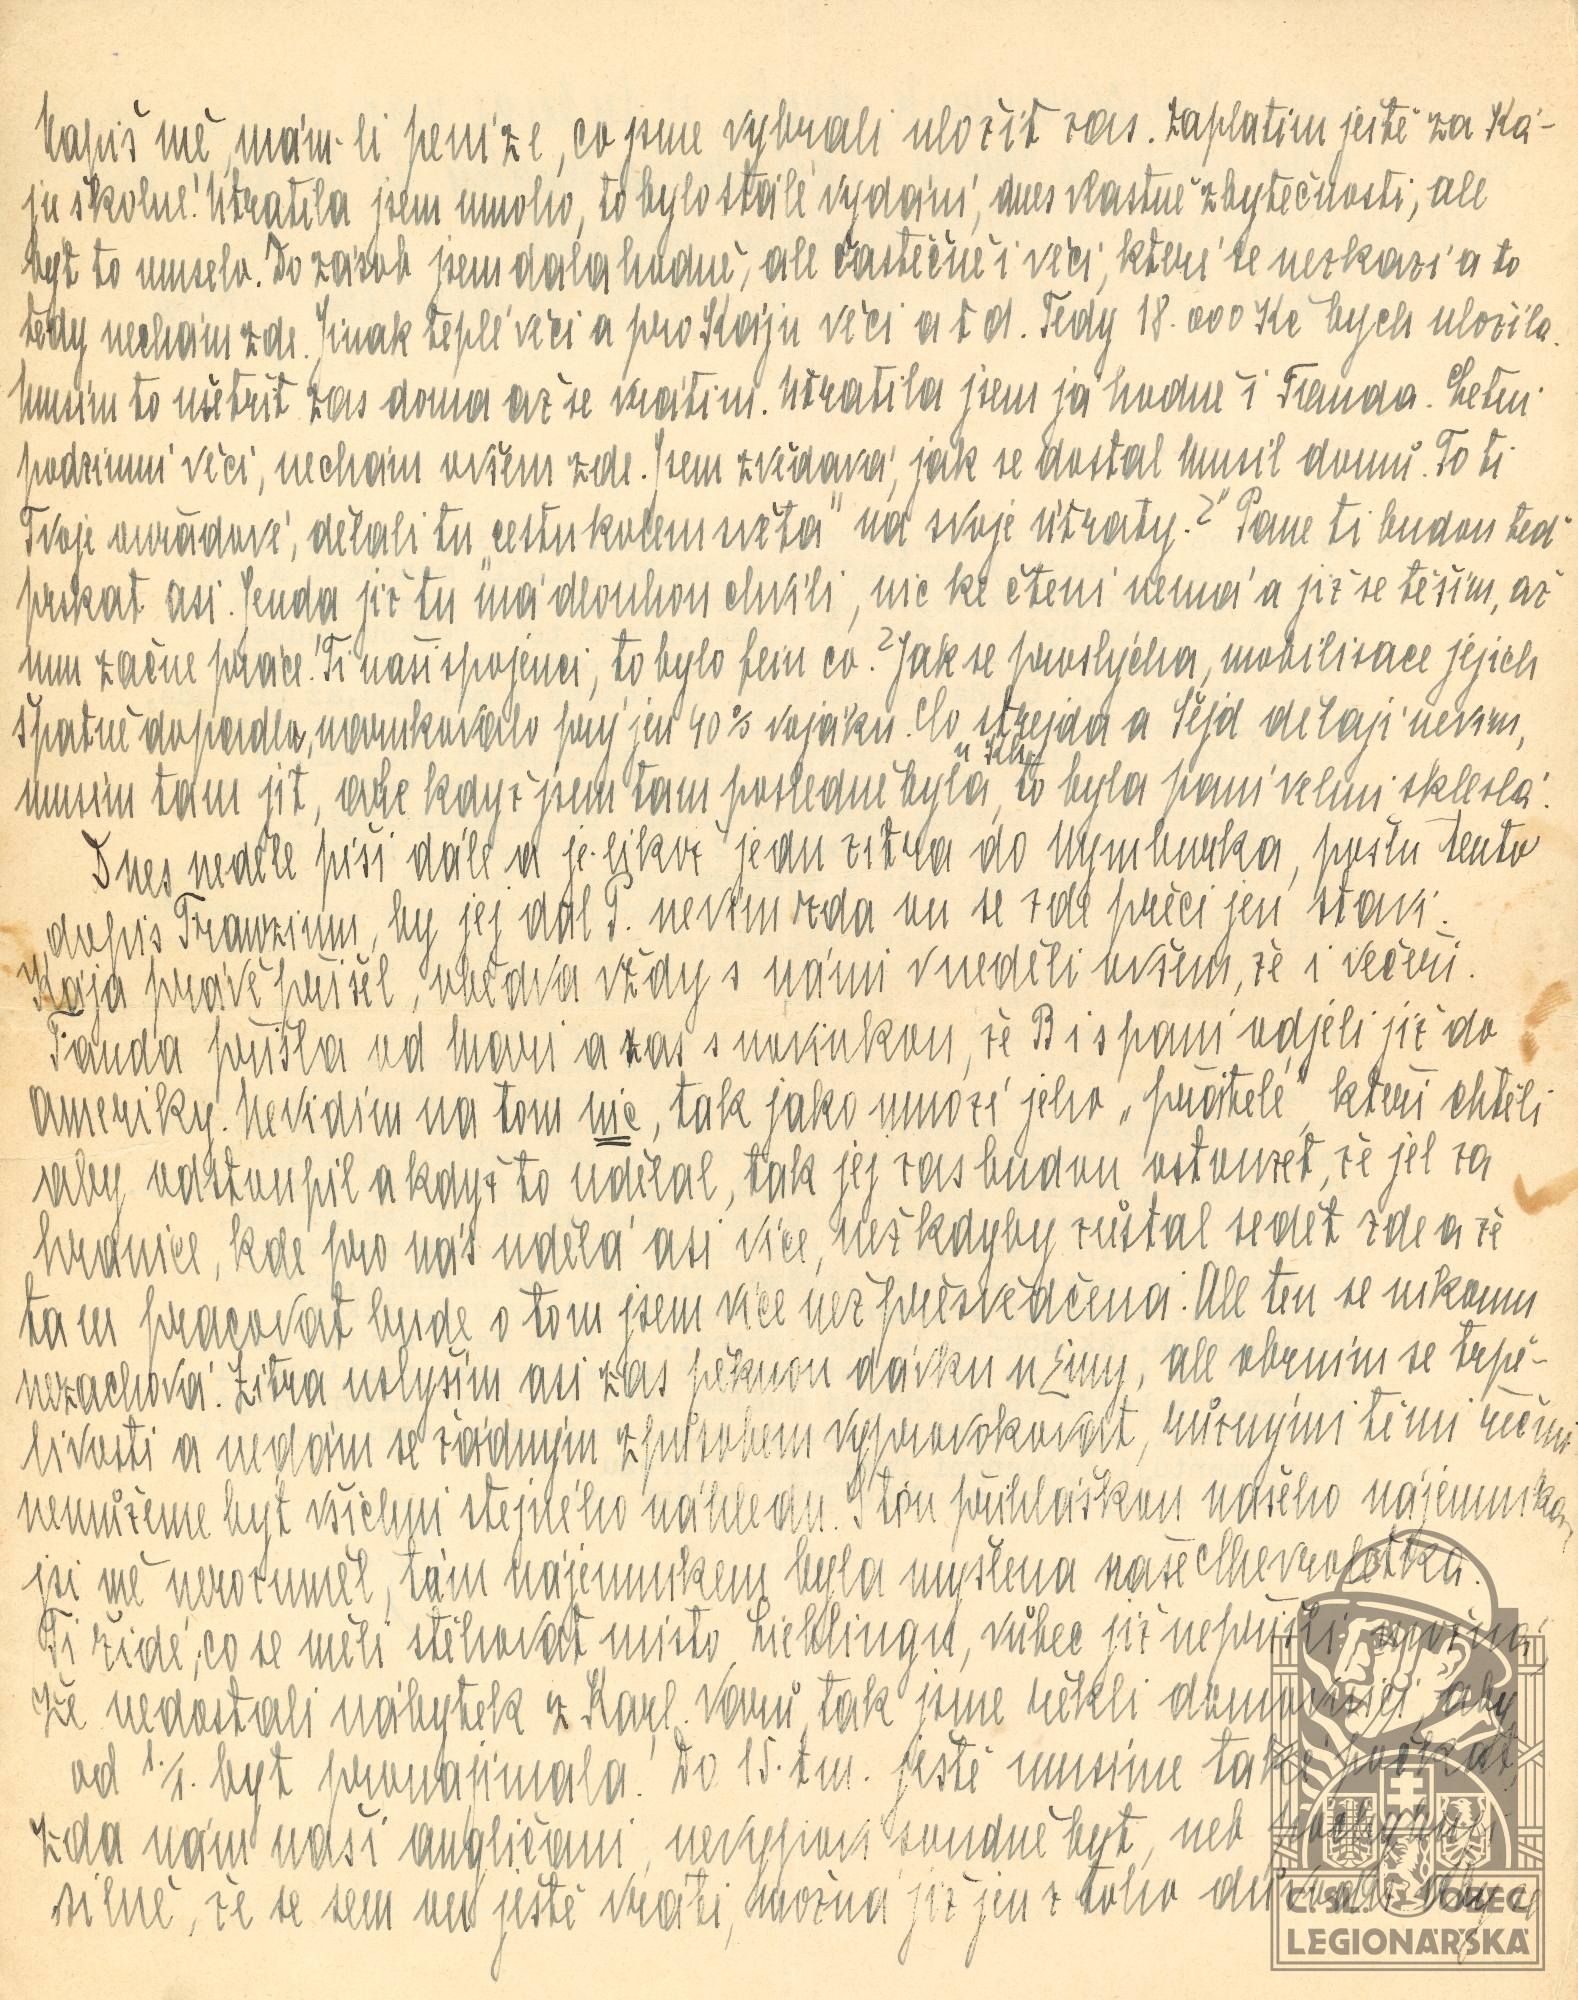 Napiš mě, mám-li peníze, co jsme vybrali uložit zas. Zaplatím ještě za Ká-
ju školné. Utratila jsem mnoho, to bylo stálé vydání, dnes vlastně zbytečnosti, ale
být to muselo. Do zásob jsem dala hodně, ale částečně i věci, které se nezkazí a to
tedy nechám zde. Jinak teplé věci a pro Káju věci a t d. Tedy 18.000 Kč bych uložila.
Musím to ušetřit zas doma až se vrátím. Utratila jsem já hodně i Franda. Letní
podzimní věci, nechám ovšem zde. Jsem zvědavá, jak se dostal Musil domů. To ti
Tvoje ouřadové, dělali tu „cestu kolem světa" na svoje útraty.?" Pane ti budou teď
prskat asi. Jenda již tu má dlouhou chvíli, nic ke čtení nemá a již se těším, až
mu začne práce. Ti naši spojenci, to bylo fein co? Jak se proslýchá, mobilisace jejich
špatně dopadla, narukovalo prý jen 40% vojáků. Co strejda a Šejd dělají nevím,
musím tam jít, ale když jsem tam posledně byla u Kh. to byla paní velmi sklesla.
Dnes neděle píši dále a je-likož jedu zítra do Nymburka, pošlu tento
dopis Franzium, by jej dal P. nevím zda on se zde přeci jen staví.
Kája právě přišel, obědvá vždy s námi v neděli ovšem, že i večeří.
Fanda přišla od Mari a zas s novinkou, že B i s paní odjeli již do
Ameriky. Nevidím na tom nic, tak jako mnozí jeho „přátelé" kteří chtěli
aby odstoupil a když to udělal, tak jej zas budou ostouzet, že jel za
hranice, kde pro nás udělá asi více, než kdyby zůstal sedět zde a že
tam pracovat bude o tom jsem více než přesvědčena. Ale ten se nikomu
nezachová. Zítra uslyším asi zas pěknou dávku u Emy, ale obrním se trpě-
livostí a nedám se žádným způsobem vyprovokovat, různými těmi řečmi
nemůžeme být všichni stejného náhledu. S tou přihláškou našeho nájemníka,
jsi mě nerozuměl, tím nájemníkem byla myšlena naše Chevroletka.
Ti židé, co se měli stěhovat místo Lieblingu, vůbec již nepřišli
že nedostali nábytek z Karl. Varů, tak jsme řekli domovnici, aby
od 1./1. byt pronajímala. Do 15. t.m. ještě musíme také počkat,
zda nám naši angličani, nevypoví soudně byt, neb
silně, že se sem on ještě vrátí, možná již jen z toho
Č.S. OBEC
LEGIONÁŘSKÁ